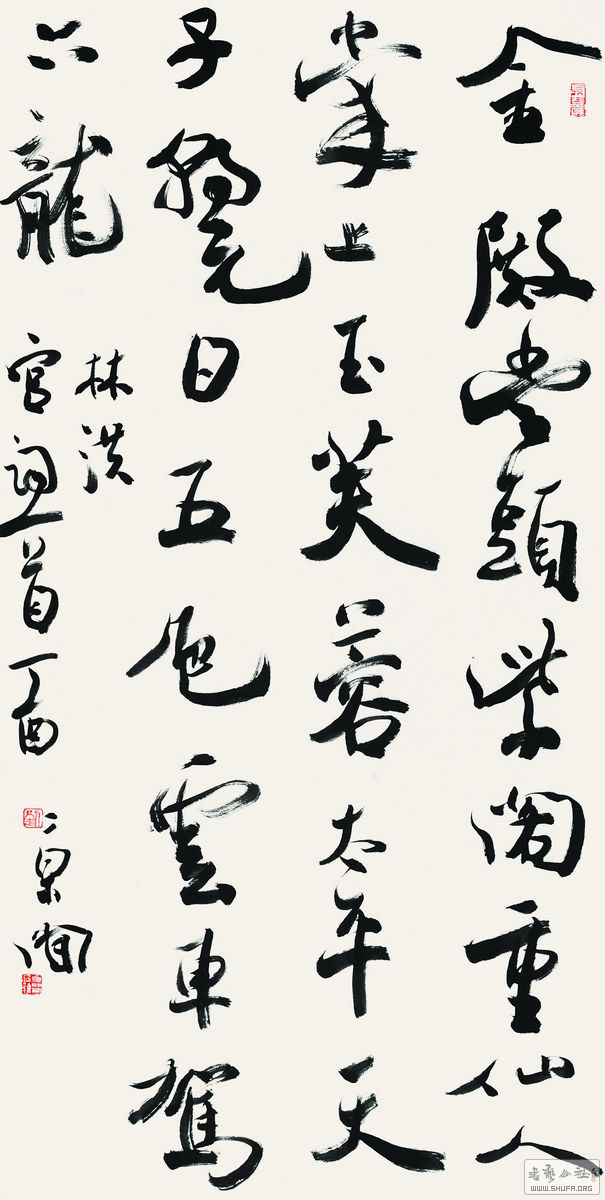 金殿當頭紫閣重仙人
掌上玉芙蓉太平天
子朝元日五色雲車駕
六龍
林洪
宮詞一首丁酉
书艺公社
WWW.SHUFA.ORG